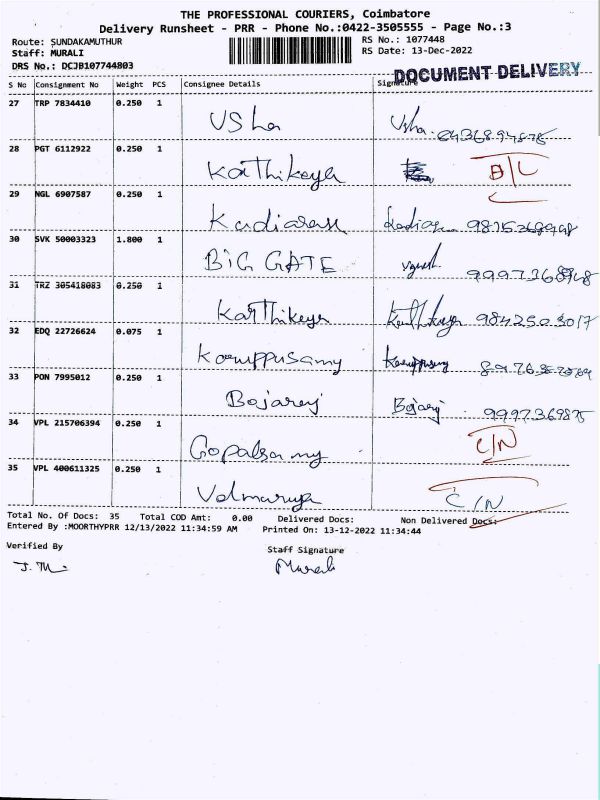 THE PROFESSIONAL COURIERS, Coimbatore
Delivery Runsheet - PRR - Phone No.:0422-3505555 - Page No.:3
Route: SUNDAKAMUTHUR
RS No.: 1077448
Staff: MURALI
RS Date: 13-Dec-2022
DRS No.: DCJB107744803
DOCUMENT DELIVERY
S No Consignment No Weight PCS Consignee Details Signature
27 TRP 7834410 0.250 1
Usha Usha
28 PGT 6112922 0.250 1
Karthikeya
29 NGL 6907587 0.250 1
30 SVK 50003323 1.800 1
BIG GATE
31 TRZ 305418083 0.250 1
Karthikeya 9842503017
32 EDQ 22726624 0.075 1
Karuppusamy Karuppusamy
33 PON 7995012 0.250 1
9997369875
34 VPL 215706394 0.250 1
Gopalsamy C/N
35 VPL 400611325 0.250 1
C/N
Total No. Of Docs: 35 Total COD Amt: 0.00 Delivered Docs: Non Delivered Docs:
Entered By :MOORTHYPRR 12/13/2022 11:34:59 AM Printed On: 13-12-2022 11:34:44
Verified By
Staff Signature
Murali